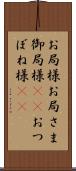 お局様お局さま
御局様おつ
ぼね様